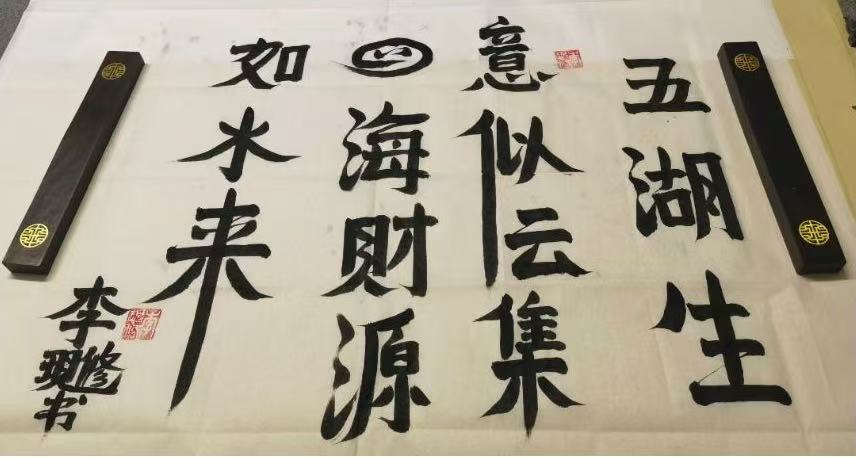 五湖生
意似云集
四海财源
如水来
李
书